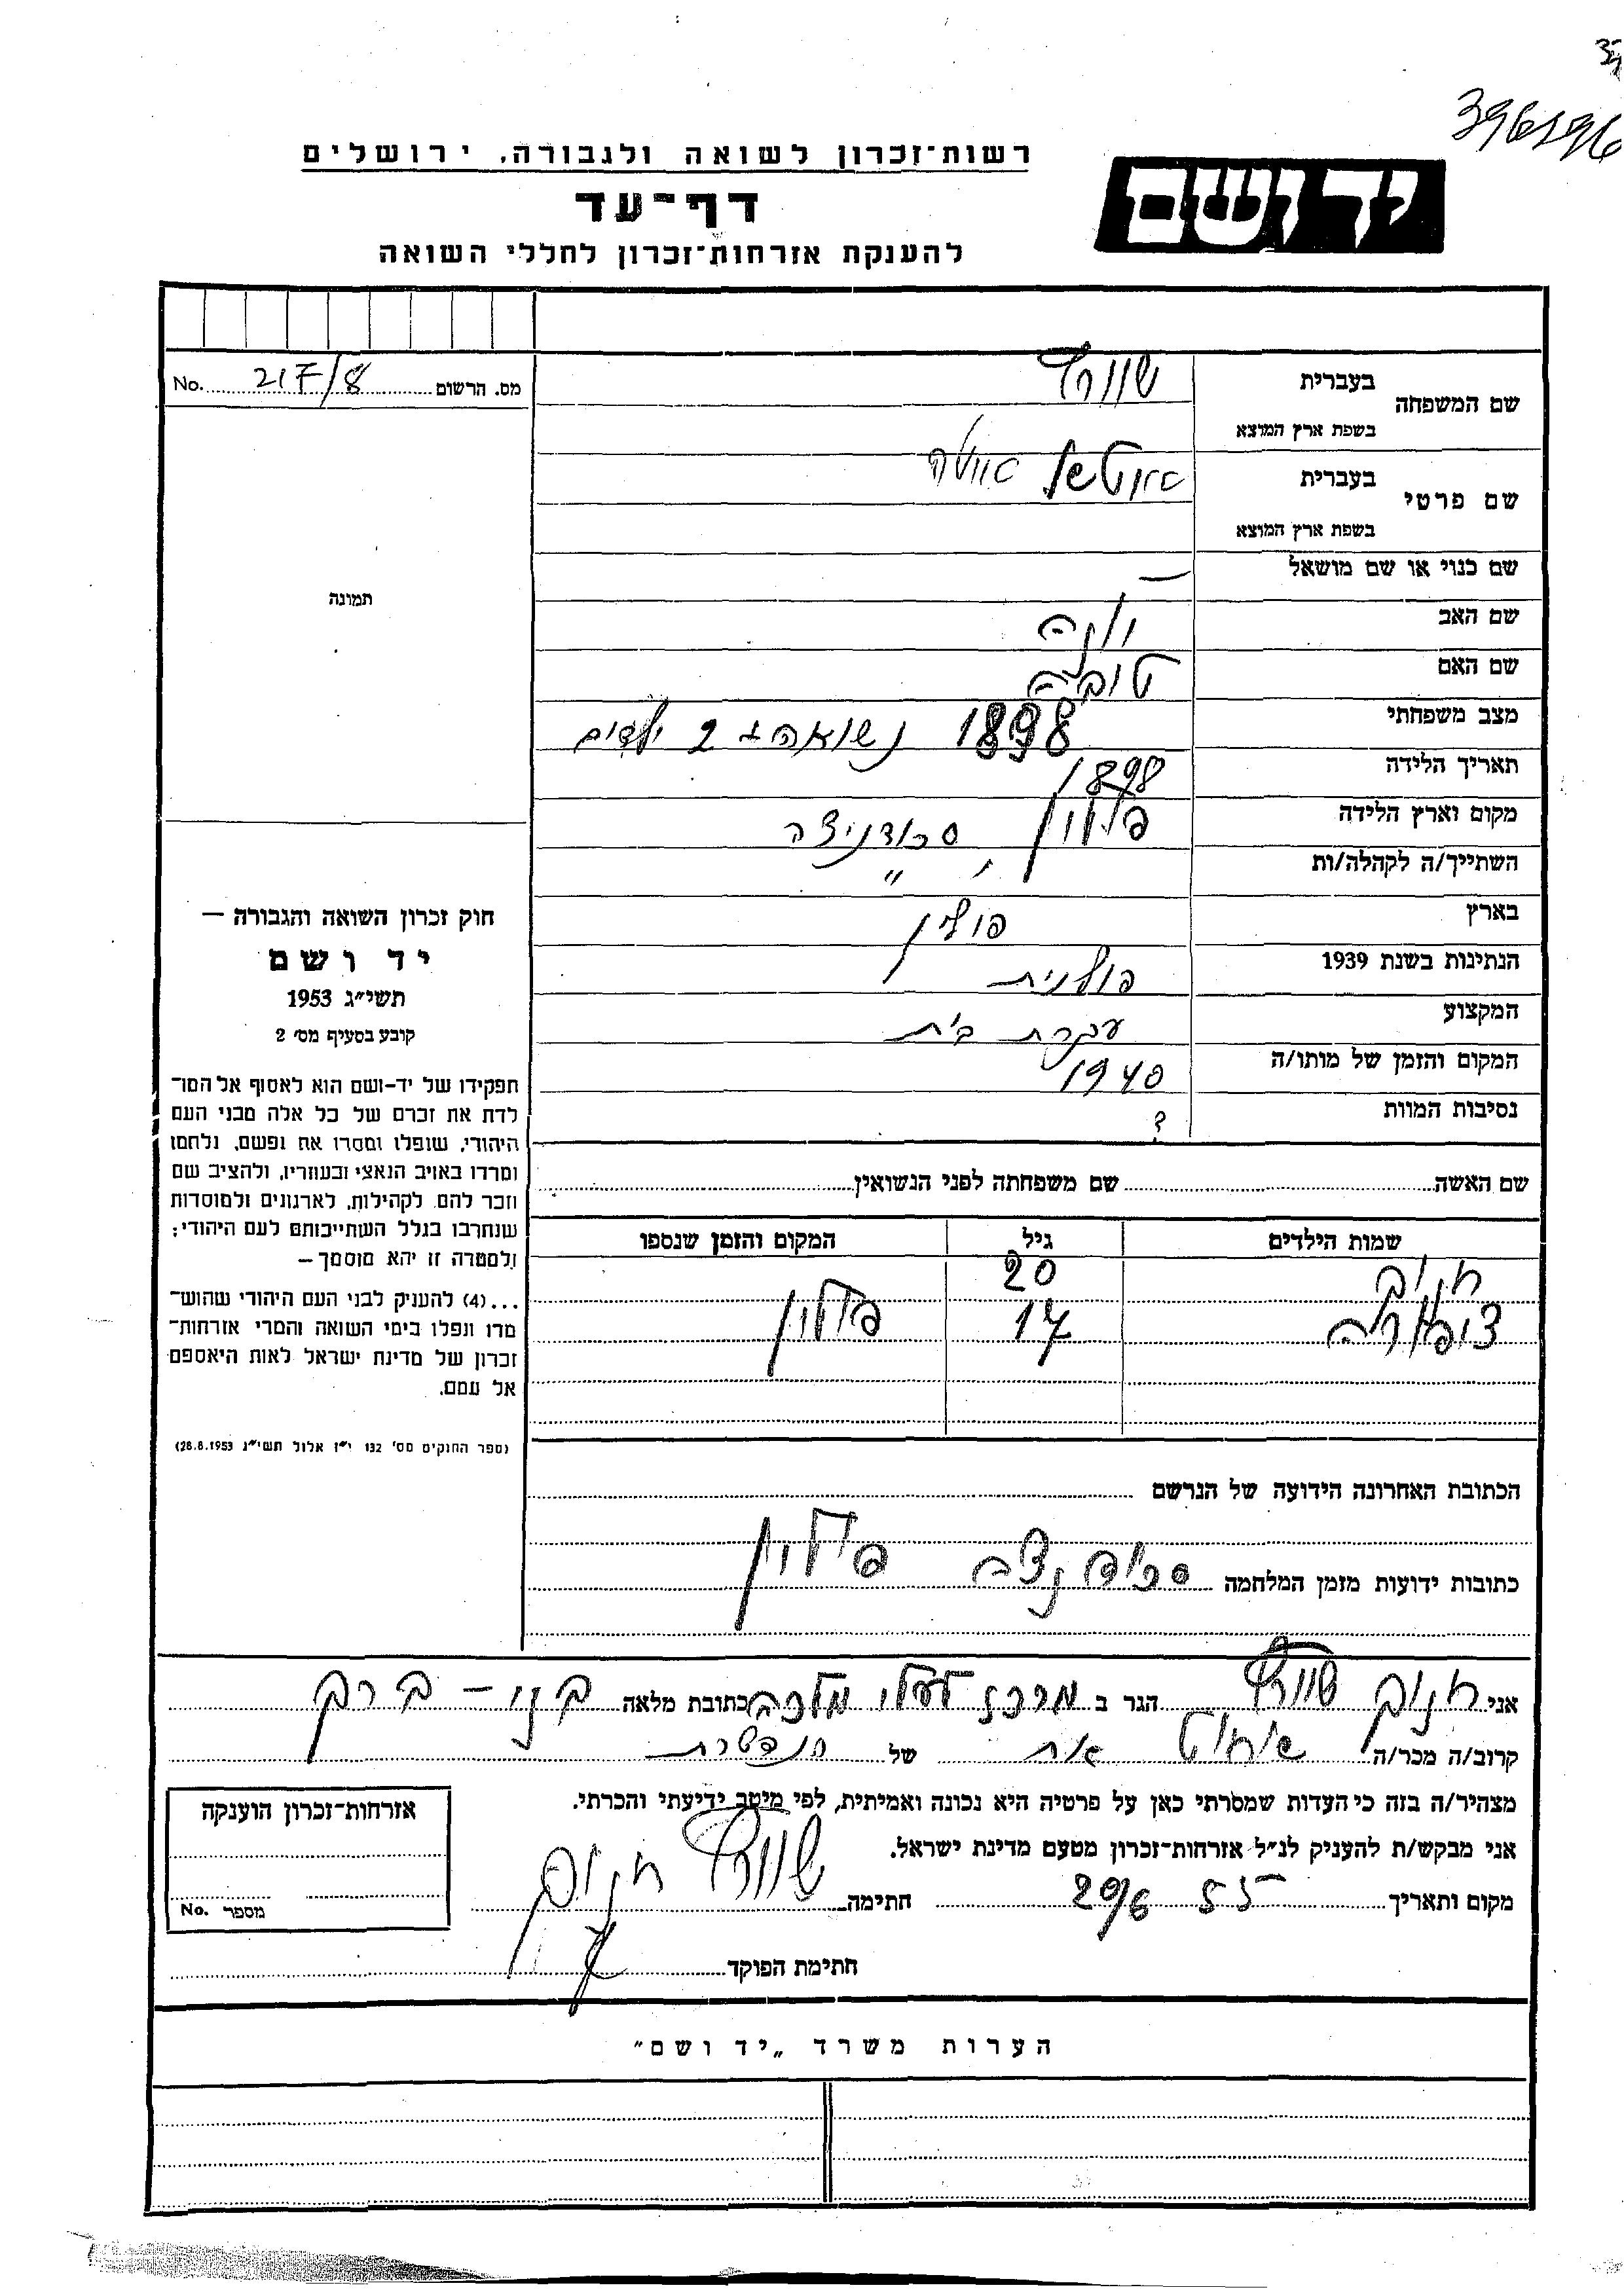 396196
רשות־זכרון לשואה ולגבורה, ירושלים
יד ושם
דף־עד
להענקת אזרחות־זכרון לחללי השואה
מס. הרשום 217/8 No.
שם המשפחה
בעברית שווארץ
בשפת ארץ המוצא
שם פרטי
בעברית
בשפת ארץ המוצא
שם כנוי או שם מושאל —
תמונה
שם האב יונה
שם האם טובה
מצב משפחתי 1898 נשואה + 2 ילדים
תאריך הלידה 1898
מקום וארץ הלידה פולין
השתייך/ה לקהלה/ות "
בארץ פולין
הנתינות בשנת 1939 פולנית
המקצוע עקרת בית
המקום והזמן של מותו/ה 1940
נסיבות המוות ?
שם האשה שם משפחתה לפני הנשואין
שמות הילדים גיל המקום והזמן שנספו
חנוך 20
ציפורה 17 פולין
הכתובת האחרונה הידועה של הנרשם
כתובות ידועות מזמן המלחמה פולין
חוק זכרון השואה והגבורה —
יד ושם
תשי״ג 1953
קובע בסעיף מס׳ 2
תפקידו של יד-ושם הוא לאסוף אל המו־
לדת את זכרם של כל אלה מבני העם
היהודי, שנפלו ומסרו את נפשם, נלחמו
ומרדו באויב הנאצי ובעוזריו, ולהציב שם
וזכר להם, לקהילות, לארגונים ולמוסדות
שנחרבו בגלל השתייכותם לעם היהודי;
ולמטרה זו יהא מוסמך —
...(4) להעניק לבני העם היהודי שהוש־
מדו ונפלו בימי השואה והמרי אזרחות־
זכרון של מדינת ישראל לאות היאספם
אל עמם.
(ספר החוקים מס׳ 132 י״ז אלול תשי״ג 28.8.1953)
אני חנוך שווארץ הגר ב מרכז כתובת מלאה בני-ברק
קרוב/ה מכר/ה של
מצהיר/ה בזה כי העדות שמסרתי כאן על פרטיה היא נכונה ואמיתית, לפי מיטב ידיעתי והכרתי.
אני מבקש/ת להעניק לנ״ל אזרחות־זכרון מטעם מדינת ישראל.
מקום ותאריך 55 20/6 חתימה שווארץ חנוך
חתימת הפוקד
אזרחות־זכרון הוענקה
מספר No.
הערות משרד „יד ושם"